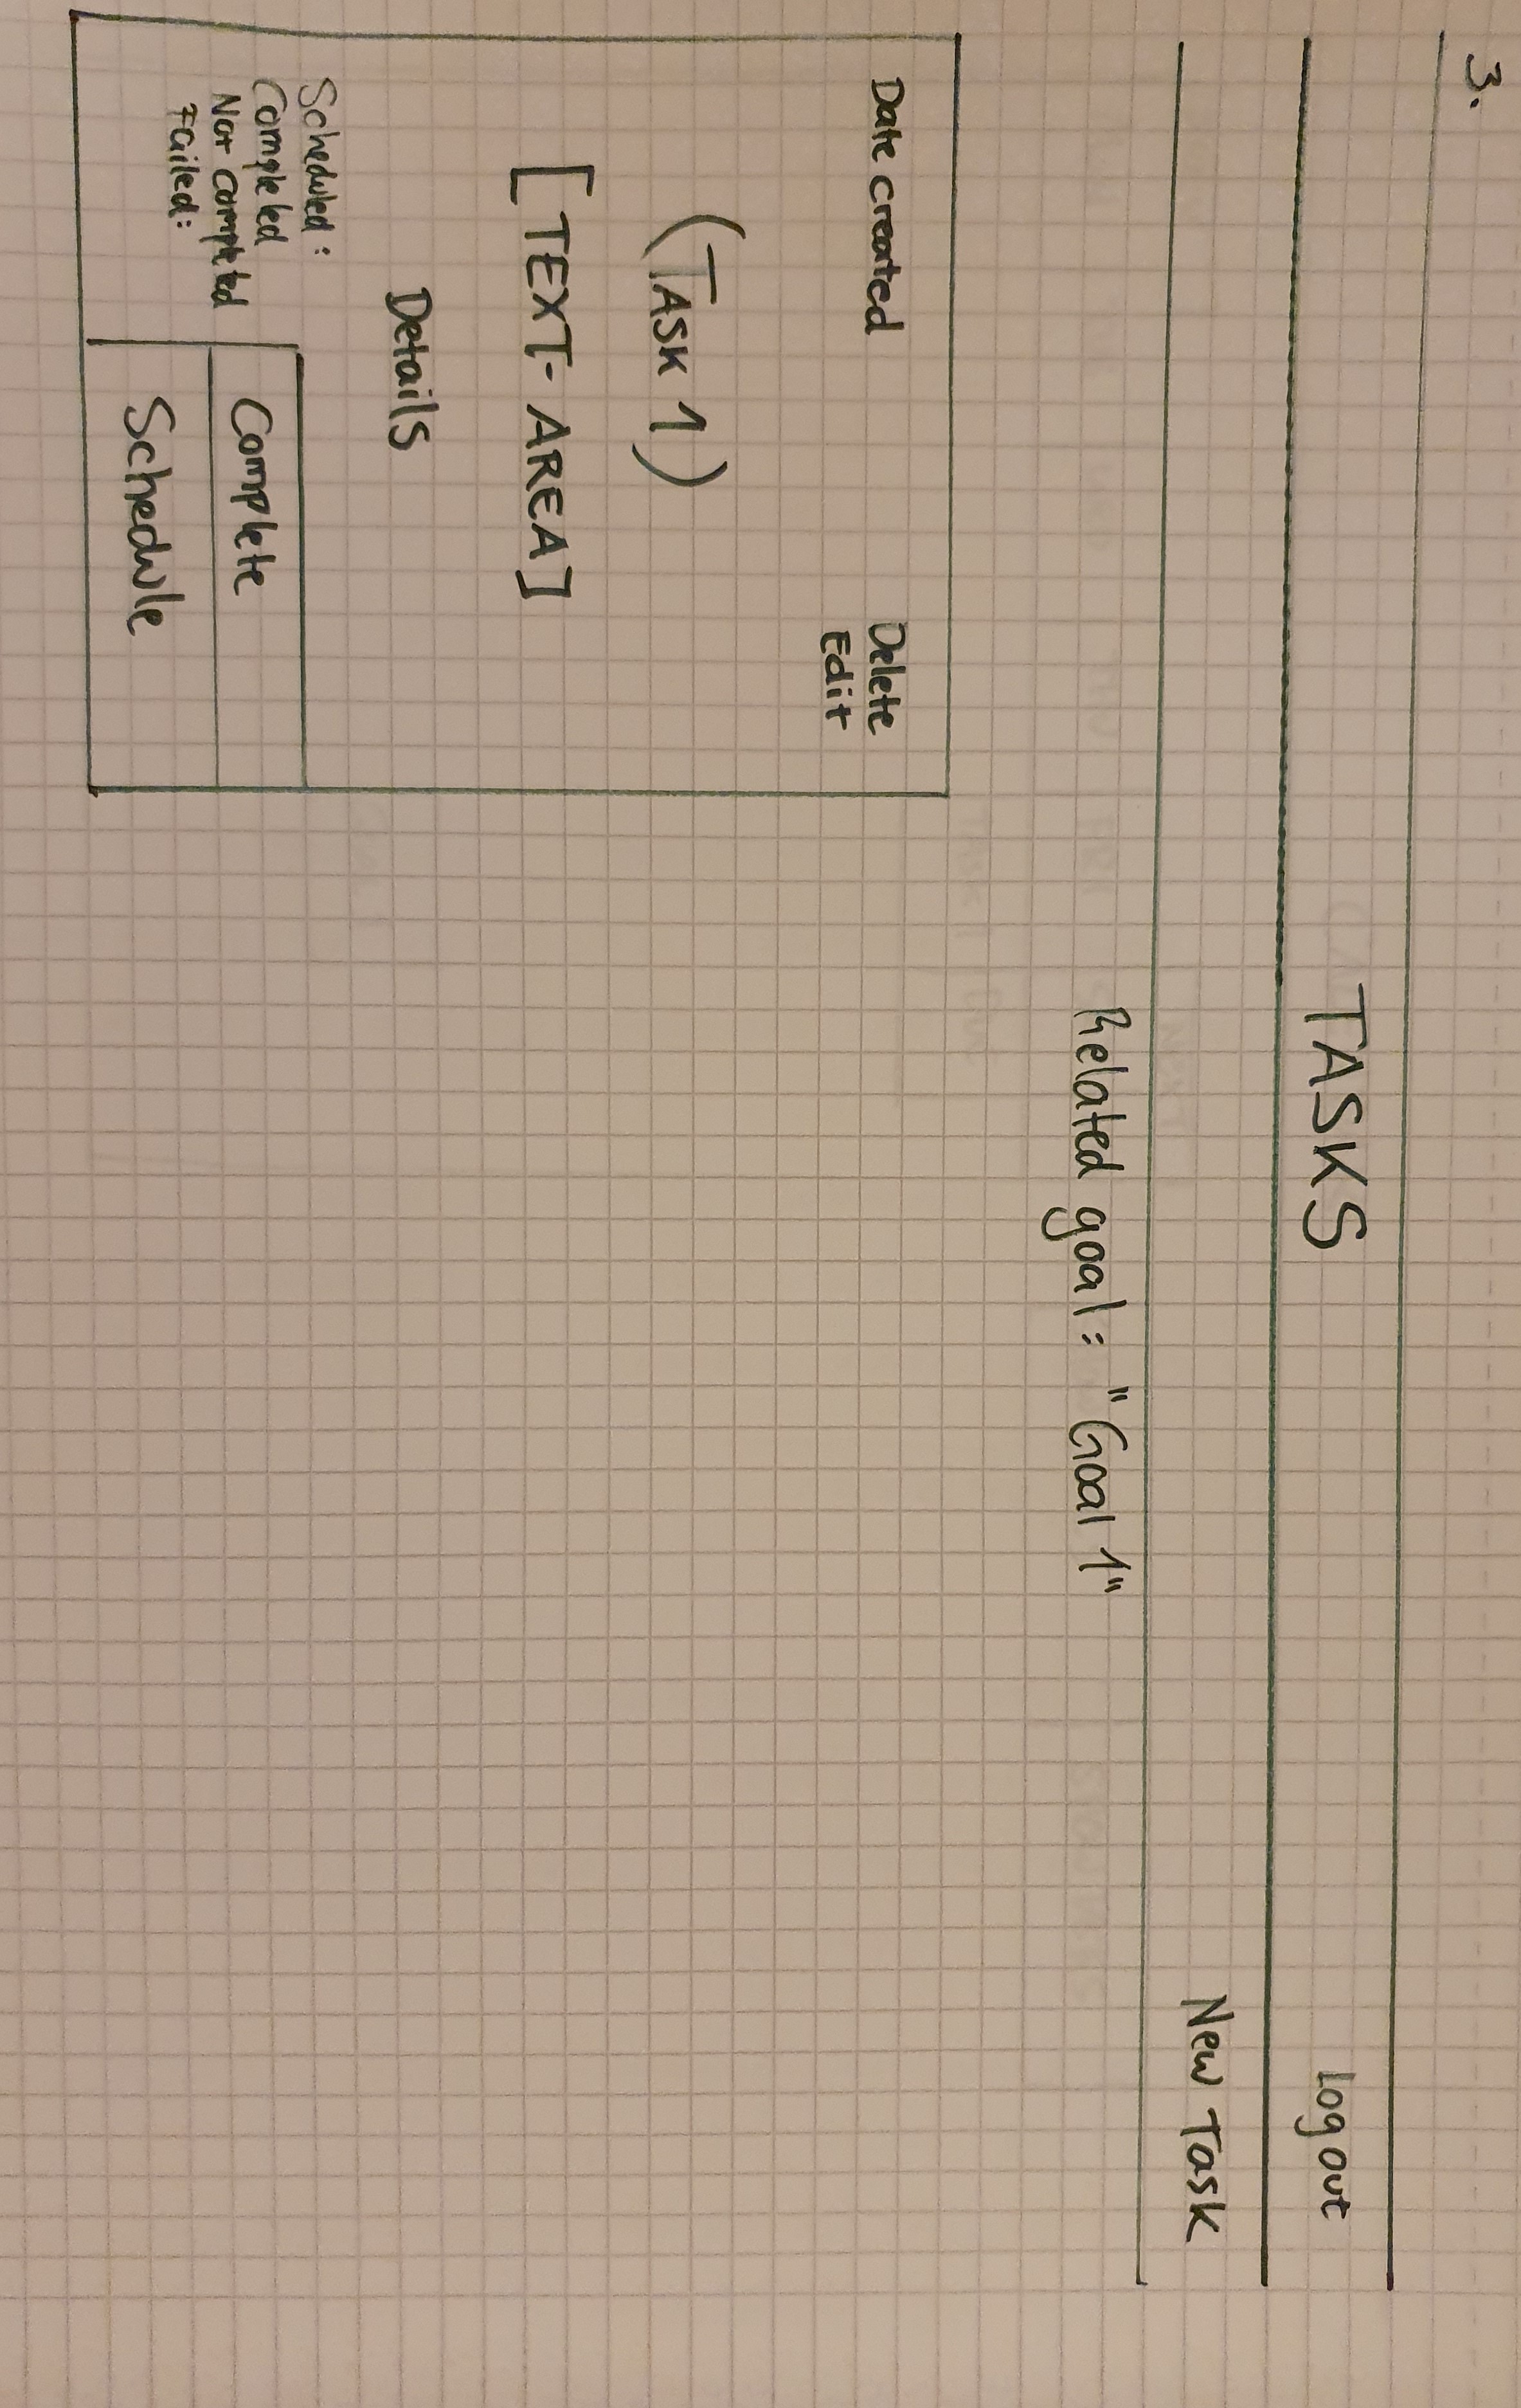 3.
TASKS Log out
New Task
Related goal: "Goal 1"
Date created Delete
Edit
(TASK 1)
[TEXT-AREA]
Details
Scheduled:
Completed
Not completed
Failed:
Complete
Schedule